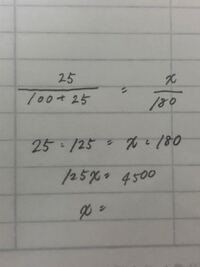 25/(100+25) = x/180
25:125 = x:180
125x = 4500
x =